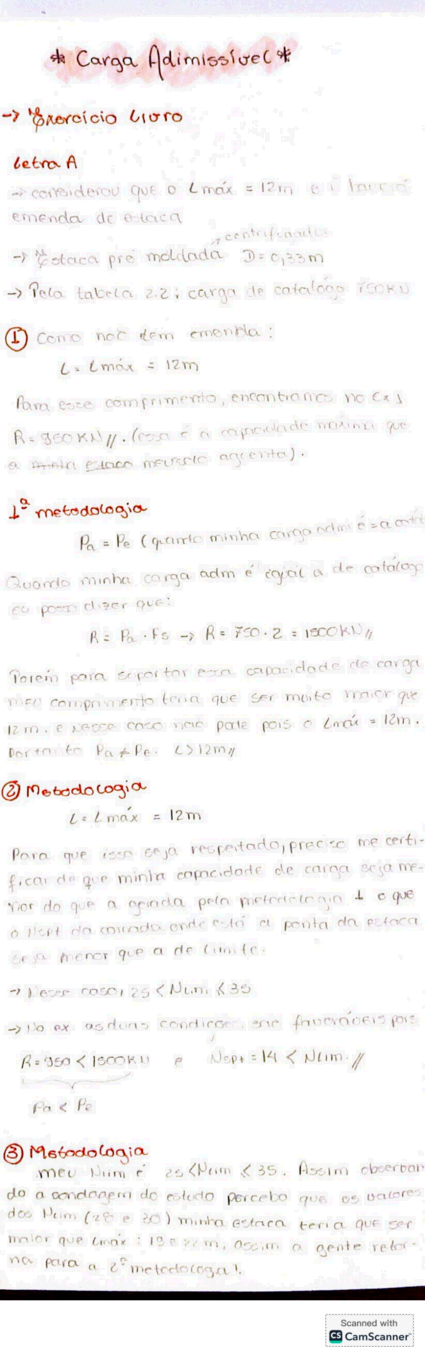 * Carga Adimissível *
-> Exercício Livro
Letra A
-> considerou que o Lmáx = 12m e
emenda de estaca
centrifugada
-> Estaca pré moldada D = 0,33m
-> Pela tabela 2.2; carga de catálogo 750KN
① Como não tem emenda:
L = Lmáx = 12m
Para esse comprimento, encontramos no Ex 1
R = 950KN //. (essa é a capacidade máxima que
a minha estaca aguenta).
1ª metodologia
Pa = Pe (quando minha carga adm é = a
Quando minha carga adm é igual a de catálogo
eu posso dizer que:
R = Pa . Fs -> R = 750 . 2 = 1500KN //
Porém para suportar essa capacidade de carga
meu comprimento teria que ser muito maior que
12m. e nesse caso não pode pois o Lmáx = 12m.
Portanto Pa ≠ Pe. L > 12m //
② Metodologia
L = Lmáx = 12m
Para que isso seja respeitado, preciso me certi-
ficar de que minha capacidade de carga seja me-
nor do que a pela metodologia 1 e que
o Nspt da camada onde está a ponta da estaca
seja menor que a de limite.
-> Nesse caso, 25 < Nlim. < 35
-> No ex. as duas condições são favoráveis pois
R = 950 < 1500KN e Nspt = 14 < Nlim. //
Pa < Pe
③ Metodologia
meu Nlim é 25 < Nlim < 35. Assim observan-
do a sondagem do estudo percebo que os valores
dos Nlim (28 e 30) minha estaca teria que ser
maior que Lmáx : 19 e 22m, assim a gente retor-
na para a 2ª metodologia!
Scanned with
CS CamScanner